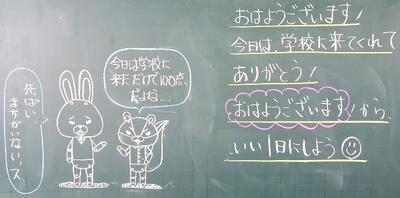 おはようございます!
今日は、学校に来てくれて
ありがとう!
おはようございます!から、
いい1日にしよう
今日は学校に
来ただけで100点、
だよな…
先ぱい、
まちがいないっス